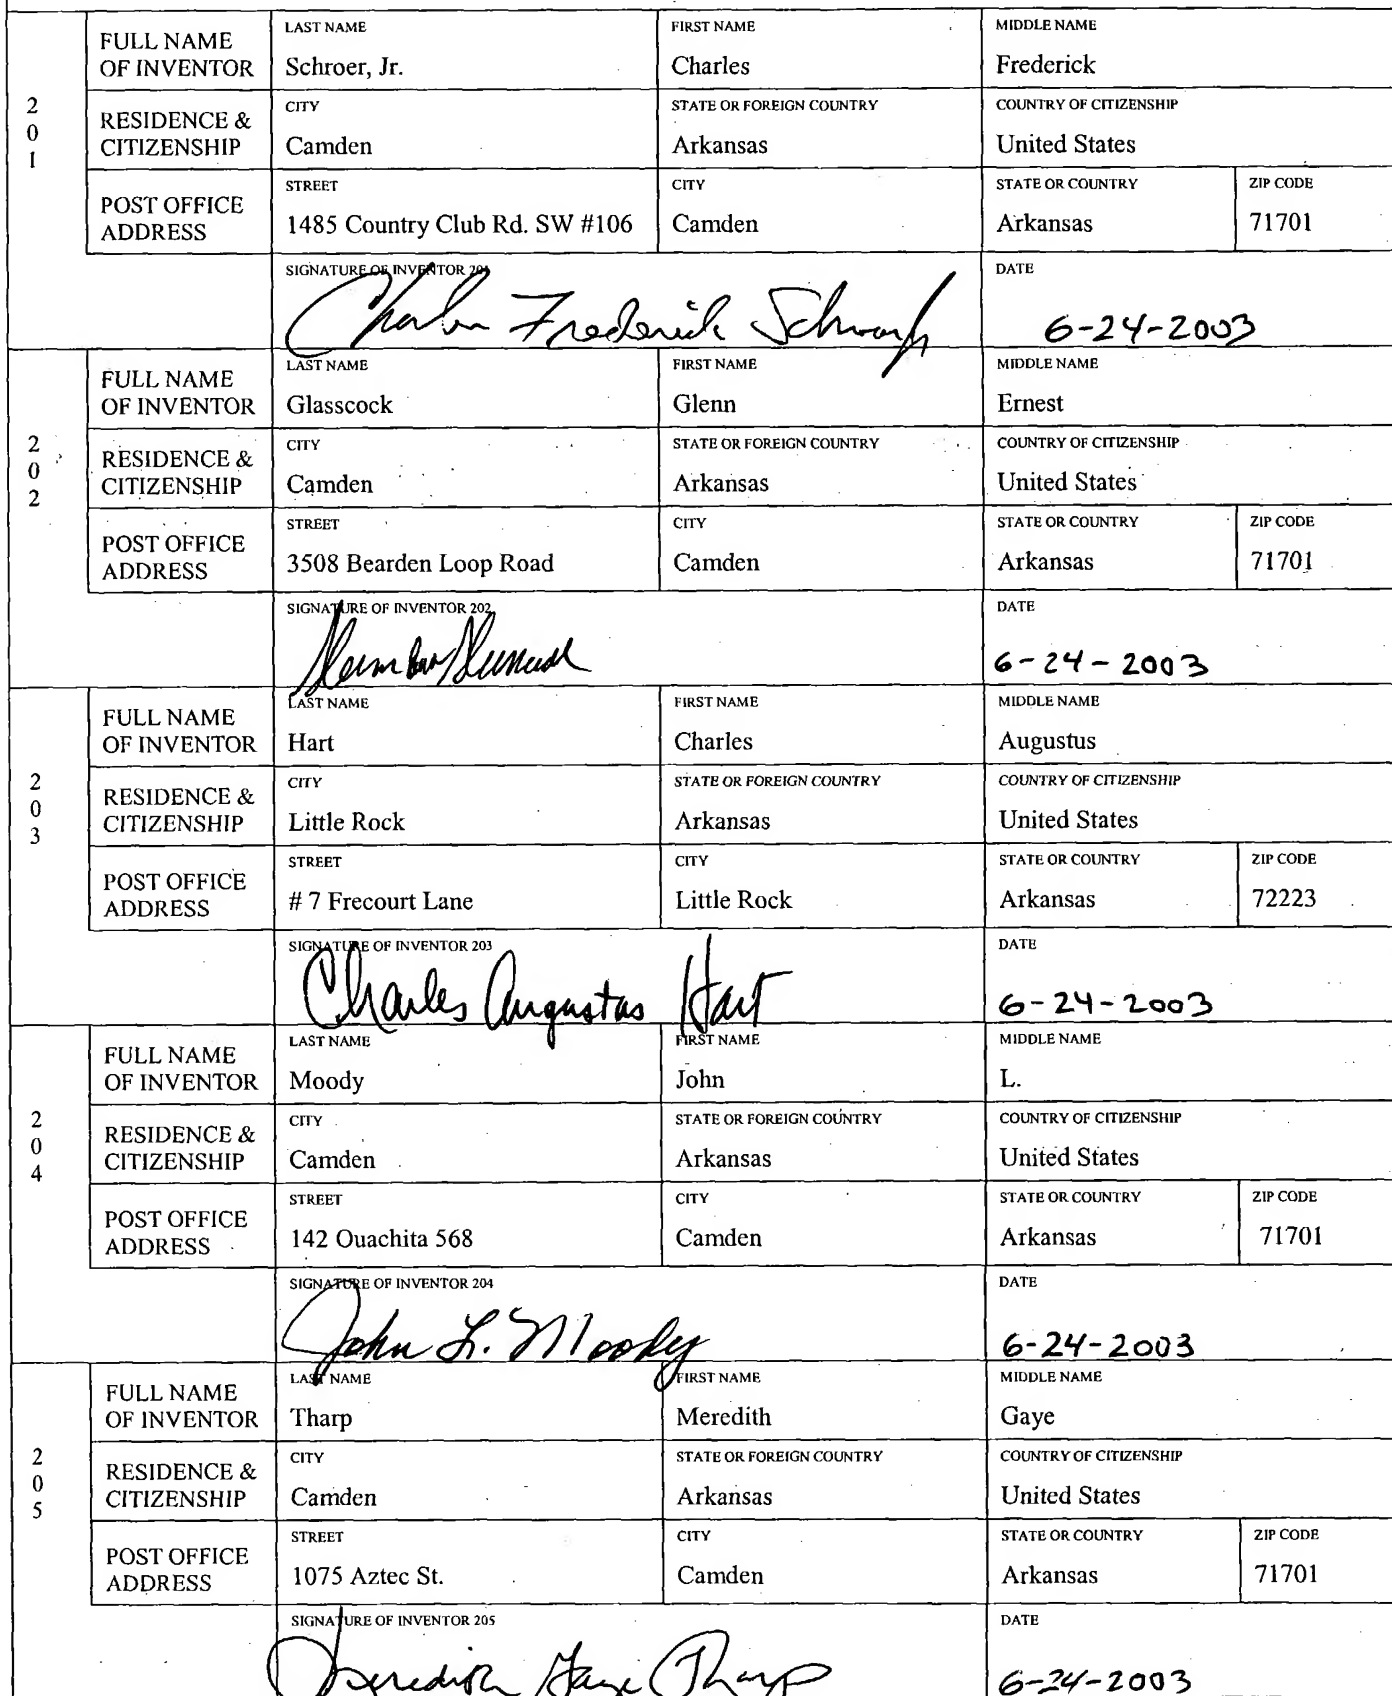 FULL NAME OF INVENTOR
LAST NAME
Schroer, Jr.
FIRST NAME
Charles
MIDDLE NAME
Frederick
201
RESIDENCE & CITIZENSHIP
CITY
Camden
STATE OR FOREIGN COUNTRY
Arkansas
COUNTRY OF CITIZENSHIP
United States
POST OFFICE ADDRESS
STREET
1485 Country Club Rd. SW #106
CITY
Camden
STATE OR COUNTRY
Arkansas
ZIP CODE
71701
SIGNATURE OF INVENTOR 201
Charles Frederick
DATE
6-24-2003
FULL NAME OF INVENTOR
LAST NAME
Glasscock
FIRST NAME
Glenn
MIDDLE NAME
Ernest
202
RESIDENCE & CITIZENSHIP
CITY
Camden
STATE OR FOREIGN COUNTRY
Arkansas
COUNTRY OF CITIZENSHIP
United States
POST OFFICE ADDRESS
STREET
3508 Bearden Loop Road
CITY
Camden
STATE OR COUNTRY
Arkansas
ZIP CODE
71701
SIGNATURE OF INVENTOR 202
DATE
6-24-2003
FULL NAME OF INVENTOR
LAST NAME
Hart
FIRST NAME
Charles
MIDDLE NAME
Augustus
203
RESIDENCE & CITIZENSHIP
CITY
Little Rock
STATE OR FOREIGN COUNTRY
Arkansas
COUNTRY OF CITIZENSHIP
United States
POST OFFICE ADDRESS
STREET
# 7 Frecourt Lane
CITY
Little Rock
STATE OR COUNTRY
Arkansas
ZIP CODE
72223
SIGNATURE OF INVENTOR 203
Charles Augustus Hart
DATE
6-24-2003
FULL NAME OF INVENTOR
LAST NAME
Moody
FIRST NAME
John
MIDDLE NAME
L.
204
RESIDENCE & CITIZENSHIP
CITY
Camden
STATE OR FOREIGN COUNTRY
Arkansas
COUNTRY OF CITIZENSHIP
United States
POST OFFICE ADDRESS
STREET
142 Ouachita 568
CITY
Camden
STATE OR COUNTRY
Arkansas
ZIP CODE
71701
SIGNATURE OF INVENTOR 204
John L. Moody
DATE
6-24-2003
FULL NAME OF INVENTOR
LAST NAME
Tharp
FIRST NAME
Meredith
MIDDLE NAME
Gaye
205
RESIDENCE & CITIZENSHIP
CITY
Camden
STATE OR FOREIGN COUNTRY
Arkansas
COUNTRY OF CITIZENSHIP
United States
POST OFFICE ADDRESS
STREET
1075 Aztec St.
CITY
Camden
STATE OR COUNTRY
Arkansas
ZIP CODE
71701
SIGNATURE OF INVENTOR 205
Meredith Gaye Tharp
DATE
6-24-2003